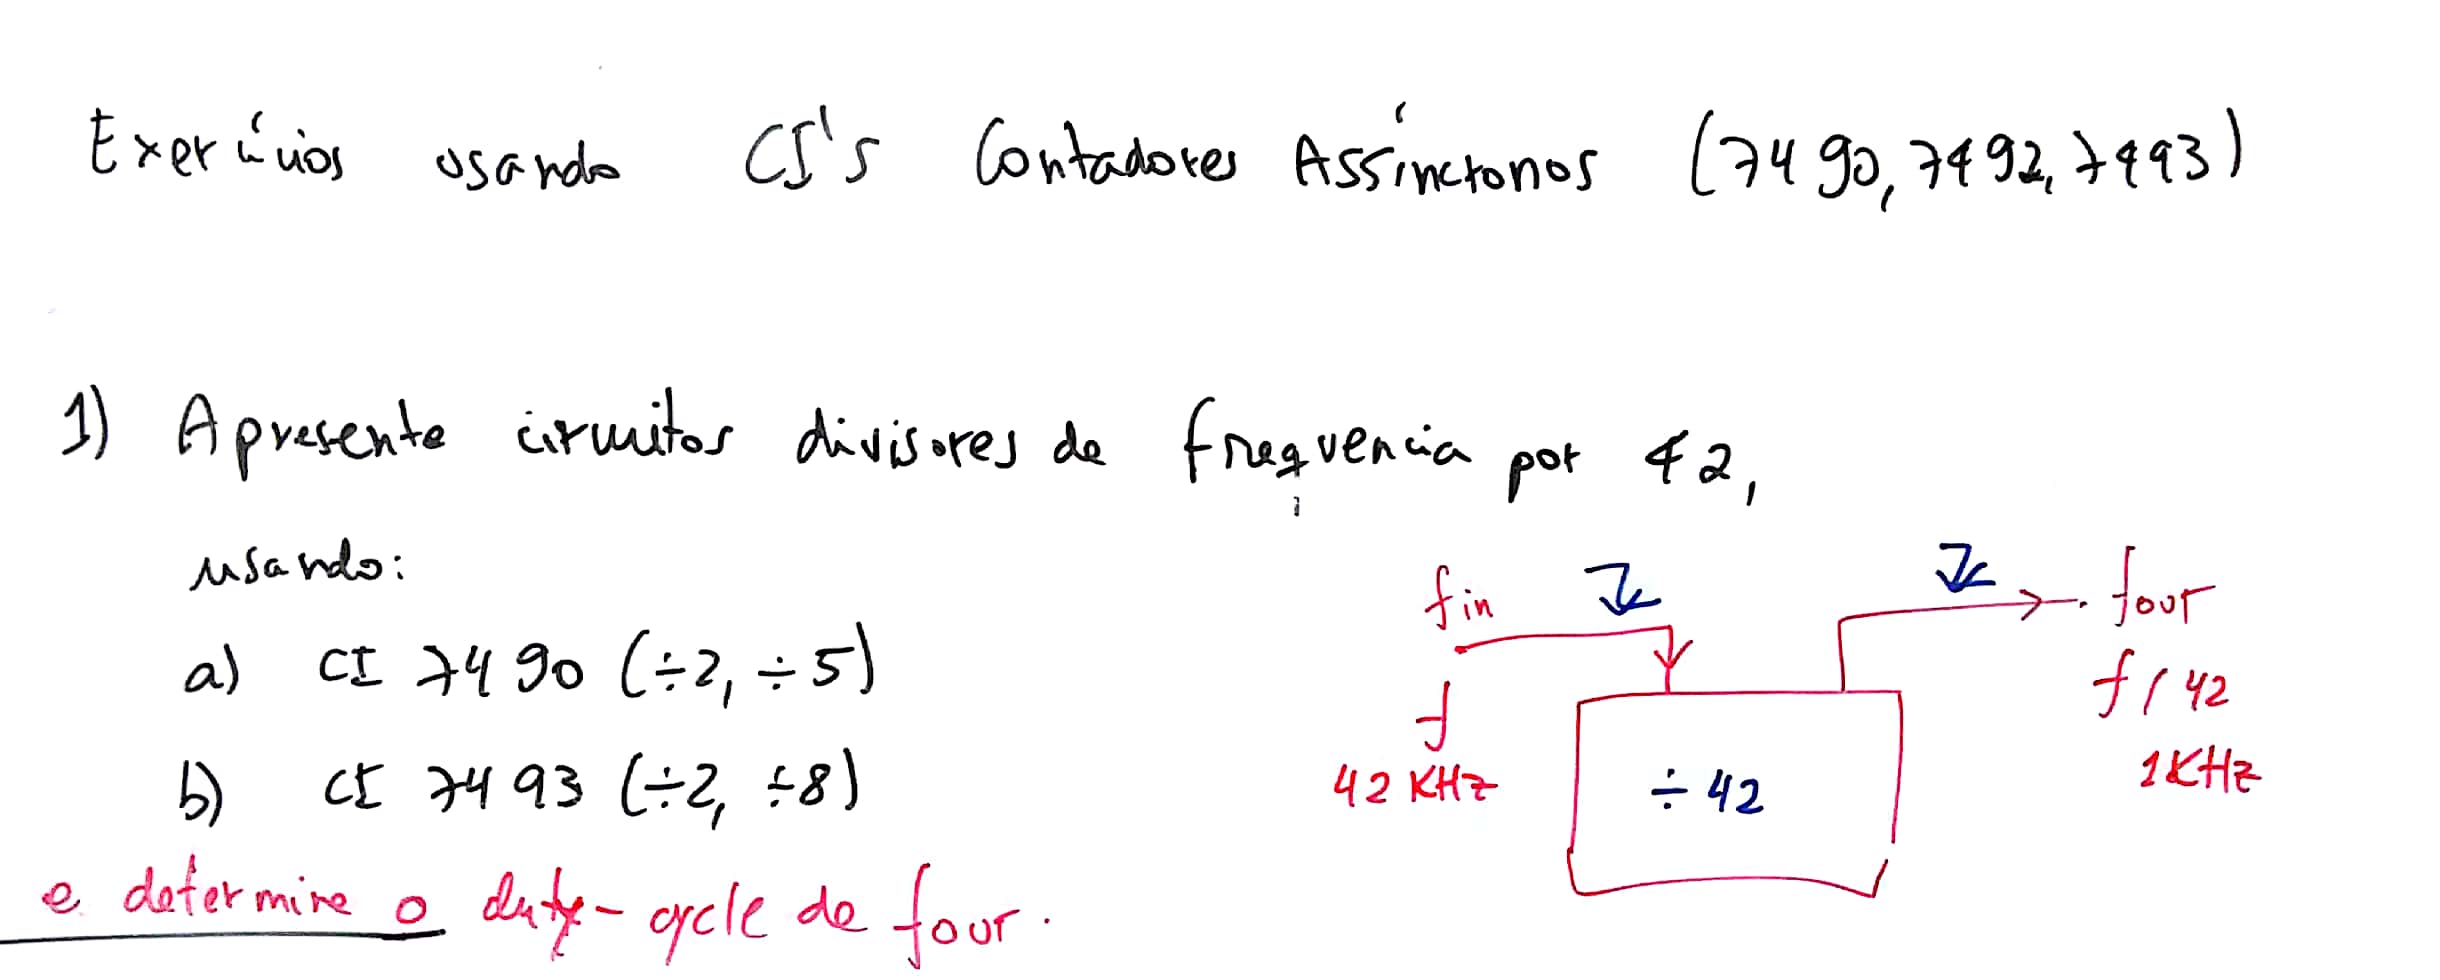 Exercícios usando CI's Contadores Assíncronos (7490, 7492, 7493)
1) Apresente circuitos divisores de frequencia por 42,
usando:
a) CI 7490 (÷2, ÷5)
b) CI 7493 (÷2, ÷8)
e determine o duty-cycle de fout.
fin
f
42 KHz
÷ 42
fout
f/42
1KHz